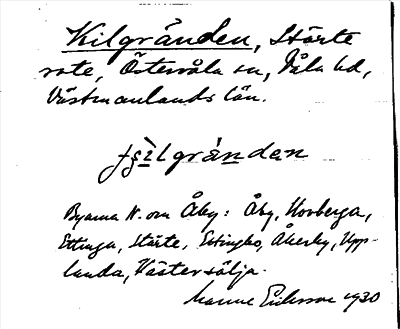 Kilgränden, Stärte
rote, Östervåla sn, Våla hd,
Västmanlands län.
gränden
Byarna N. om Åby: Åby, Horberga,
Ettinga, Stärte, Ettingbo, Åkerby, Upp-
landa, Västersälja.
Manne Eriksson 1930